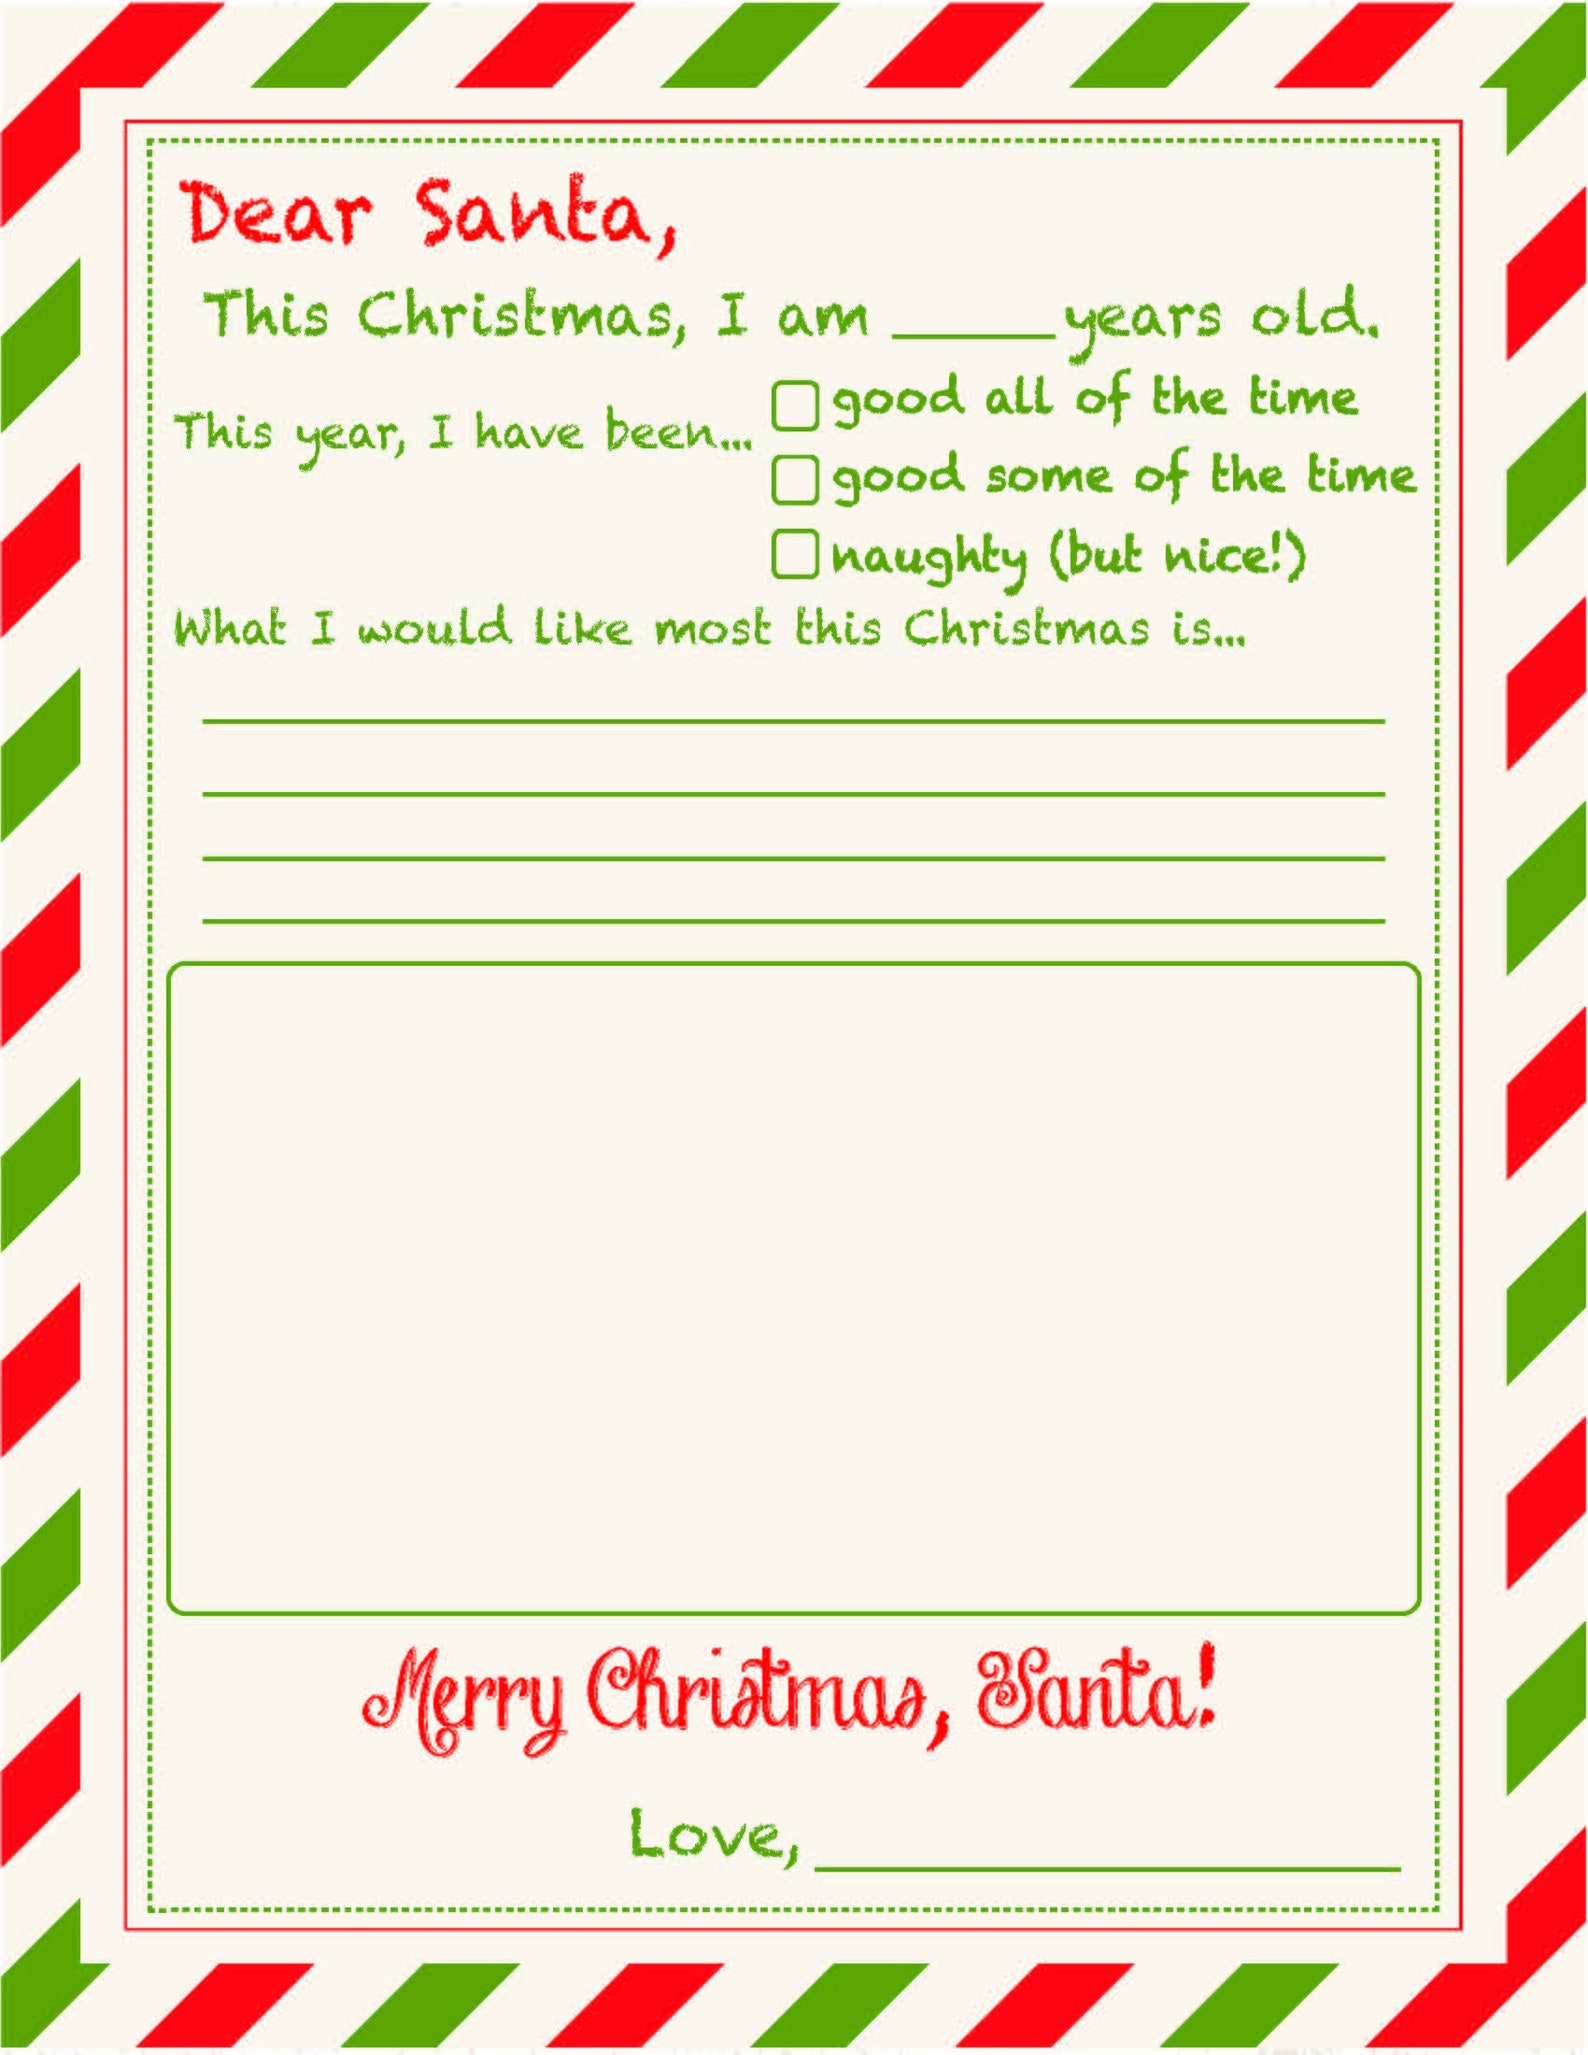 Dear Santa,
This Christmas, I am _____ years old.
This year, I have been...
good all of the time
good some of the time
naughty (but nice!)
What I would like most this Christmas is...
Merry Christmas, Santa!
Love, _______________